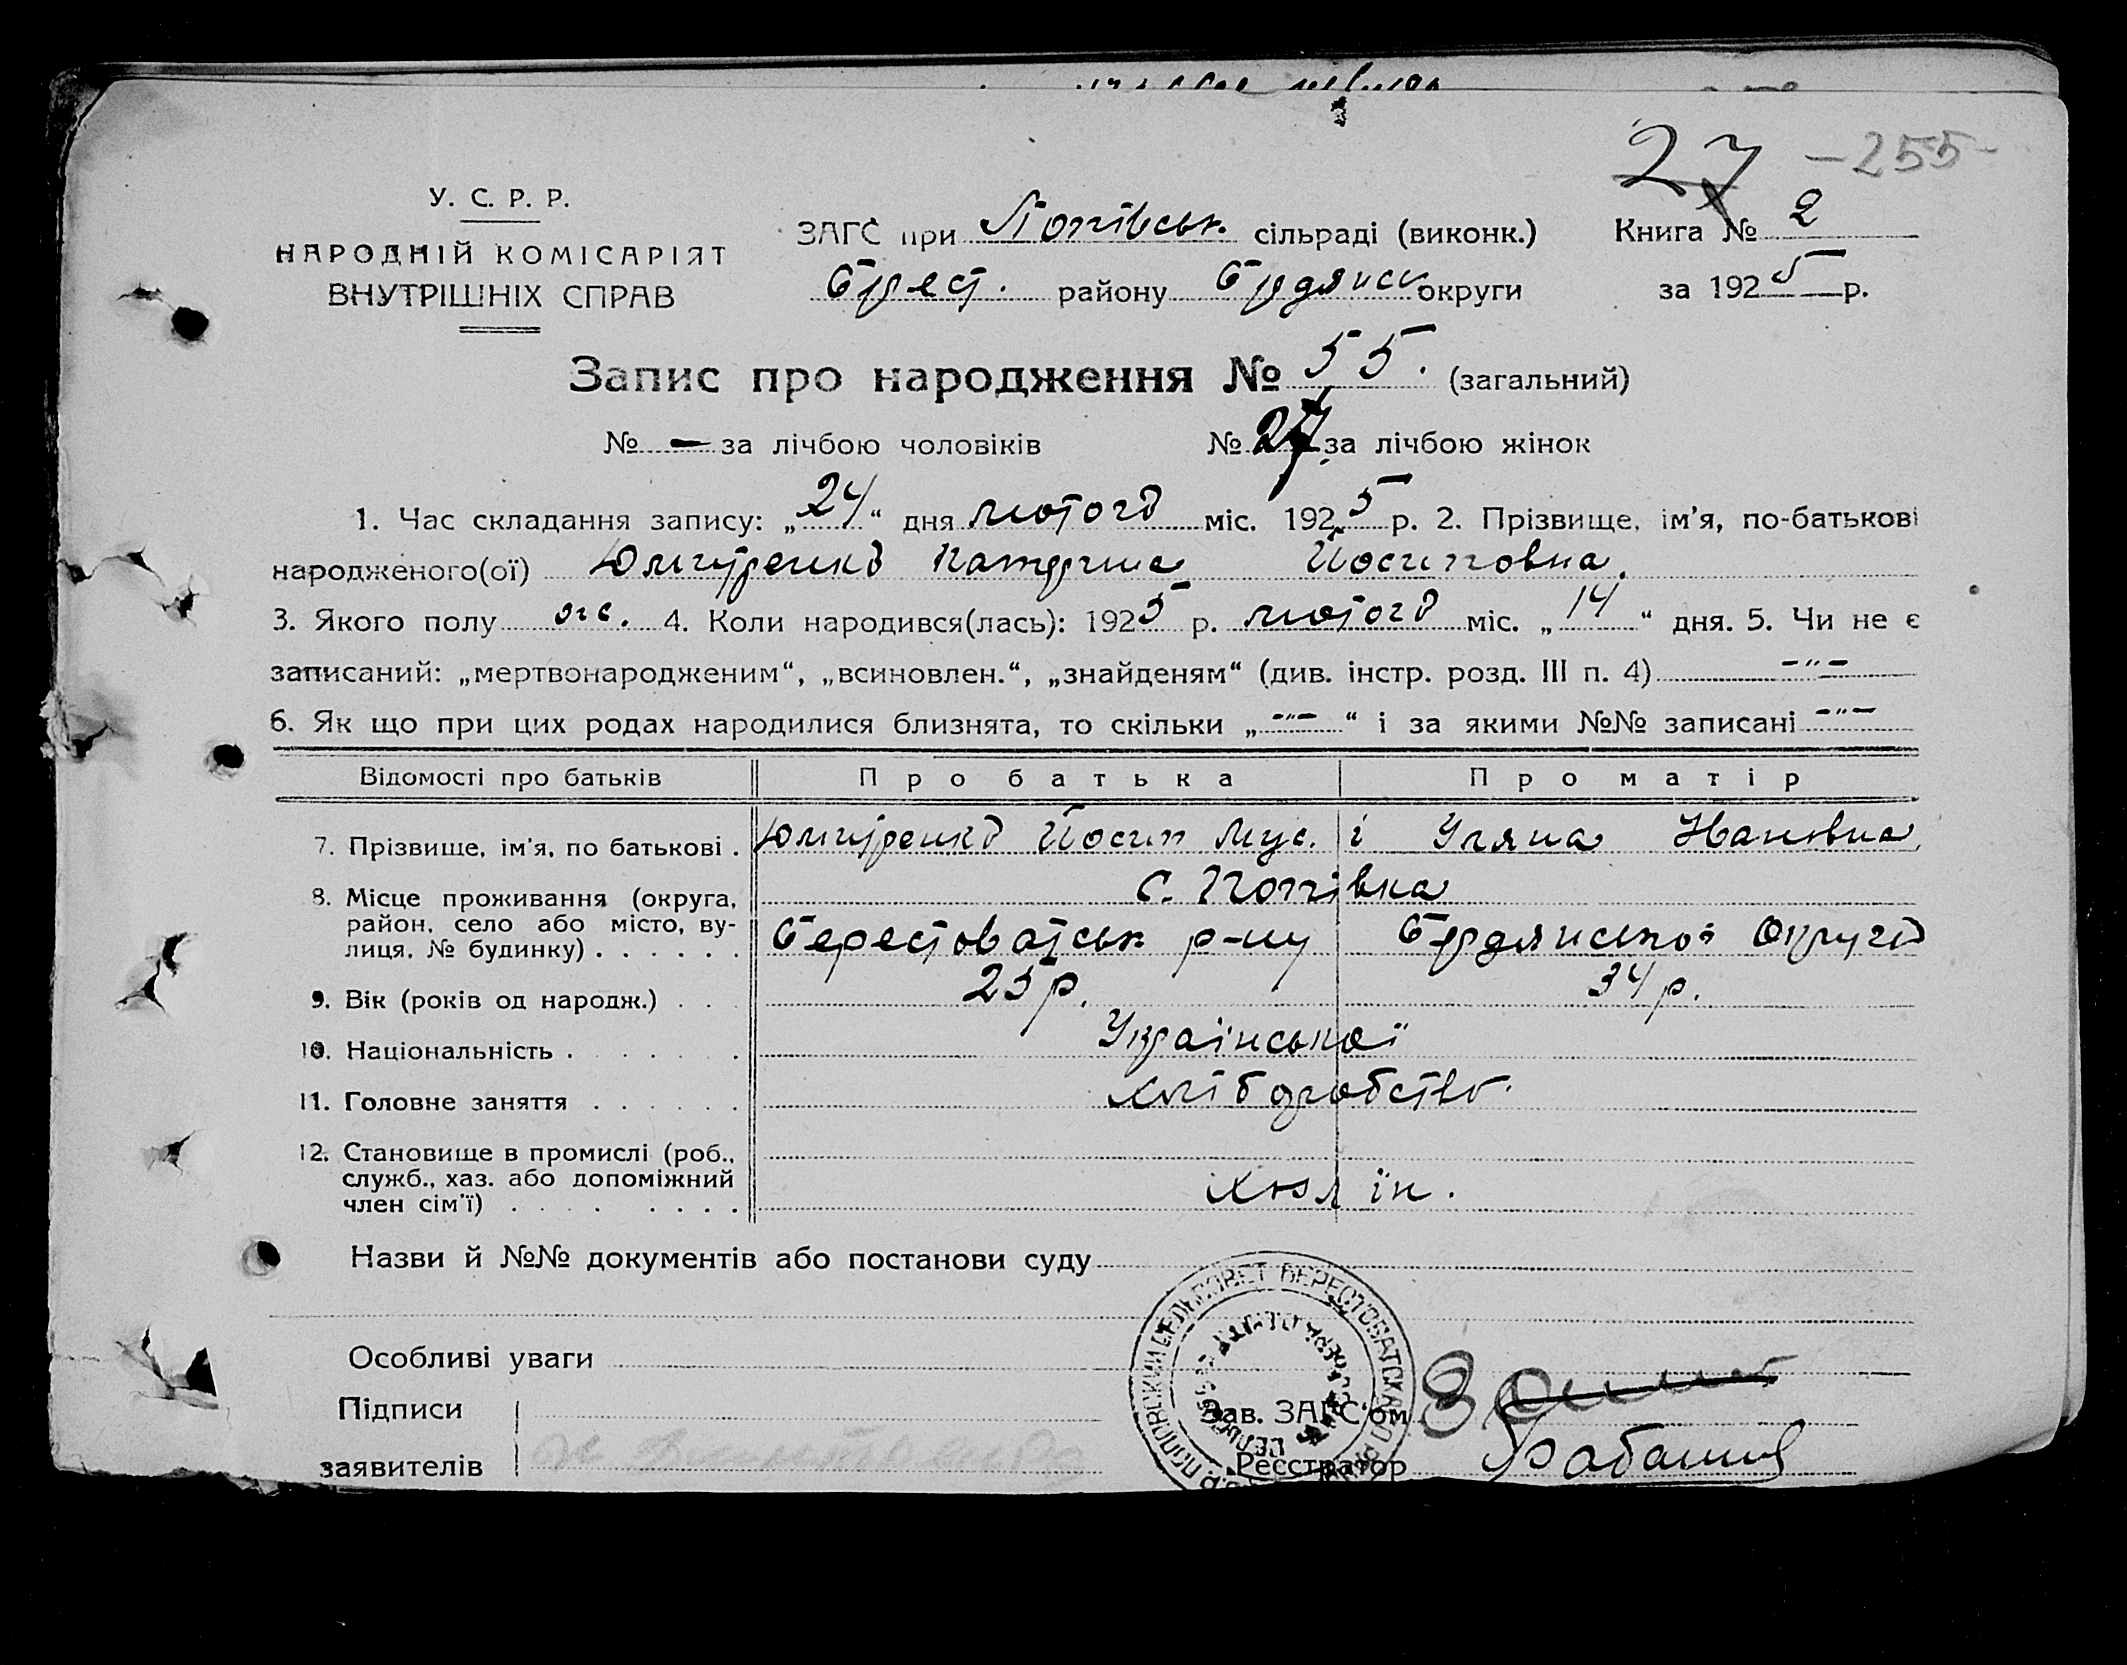 27 -255-
У. С. Р. Р.
НАРОДНІЙ КОМІСАРІЯТ
ВНУТРІШНІХ СПРАВ
ЗАГС при Попівськ. сільраді (виконк.) Книга № 2
Брест. району Брдянськ округи за 1925 р.
Запис про народження № 55. (загальний)
№ — за лічбою чоловіків № 27 за лічбою жінок
1. Час складання запису: „24“ дня лютого міс. 1925 р. 2. Прізвище, ім'я, по-батькові
народженого(ої) Катерина Йосиповна.
3. Якого полу жс. 4. Коли народився(лась): 1925 р. лютого міс. „14“ дня. 5. Чи не є
записаний: „мертвонародженим“, „всиновлен.“, „знайденям“ (див. інстр. розд. III п. 4) -"-
6. Як що при цих родах народилися близнята, то скільки „-"-“ і за якими №№ записані -"-
Відомості про батьків Про батька Про матір
7. Прізвище, ім'я, по батькові . Йосип Мус. і Уляна Івановна
8. Місце проживання (округа, район, село або місто, вулиця, № будинку) . . . . . . с. Попівка
Берестоватськ р-ну Бердянської Округи
9. Вік (років од народж.) . . . 25 р. 34 р.
10. Національність . . . . . . . Української
11. Головне заняття . . . . . . Хліборобство.
12. Становище в промислі (роб., служб., хаз. або допоміжний член сім'ї) . . . . . . . . Хазяїн.
Назви й №№ документів або постанови суду
Особливі уваги
Підписи
заявителів
Зав. ЗАГС'ом
Реєстратор